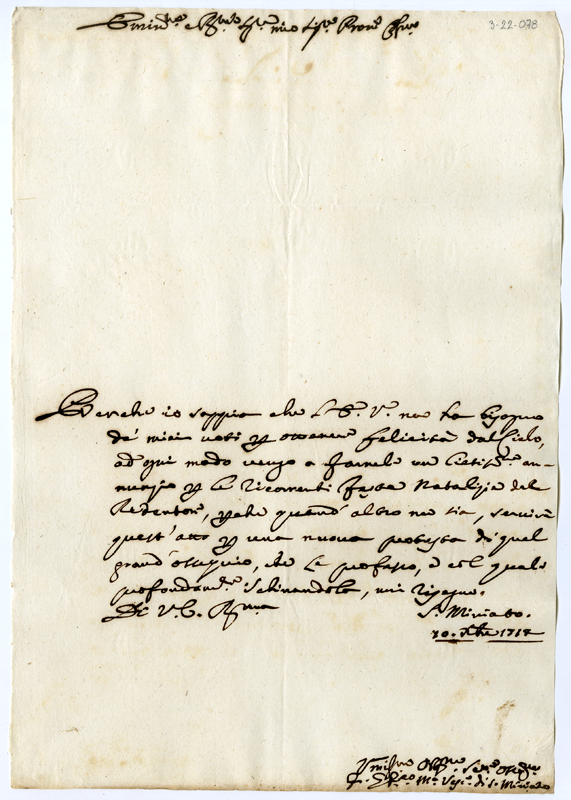 3-22-078
Emin.mo e R.mo Sig.r mio Sig.r Pron.
Benche io sappia che l'E. V. non ha bisogno
de' miei voti p ottenere felicità dal Cielo,
ad ogni modo vengo a farnele un lietiss.o an-
nunzio p le ricorrenti feste Natalizie del
Redentore, perche quand'altro non sia, servirà
quest'atto p una nuova protesta di quel
grand'ossequio, che le professo, e col quale
profondam.te inchinandola, mi rassegno.
Di V. E. R.ma
S. Miniato.
10. Xbre 1717
Umiliss.mo
Vesc.o di S. Miniato